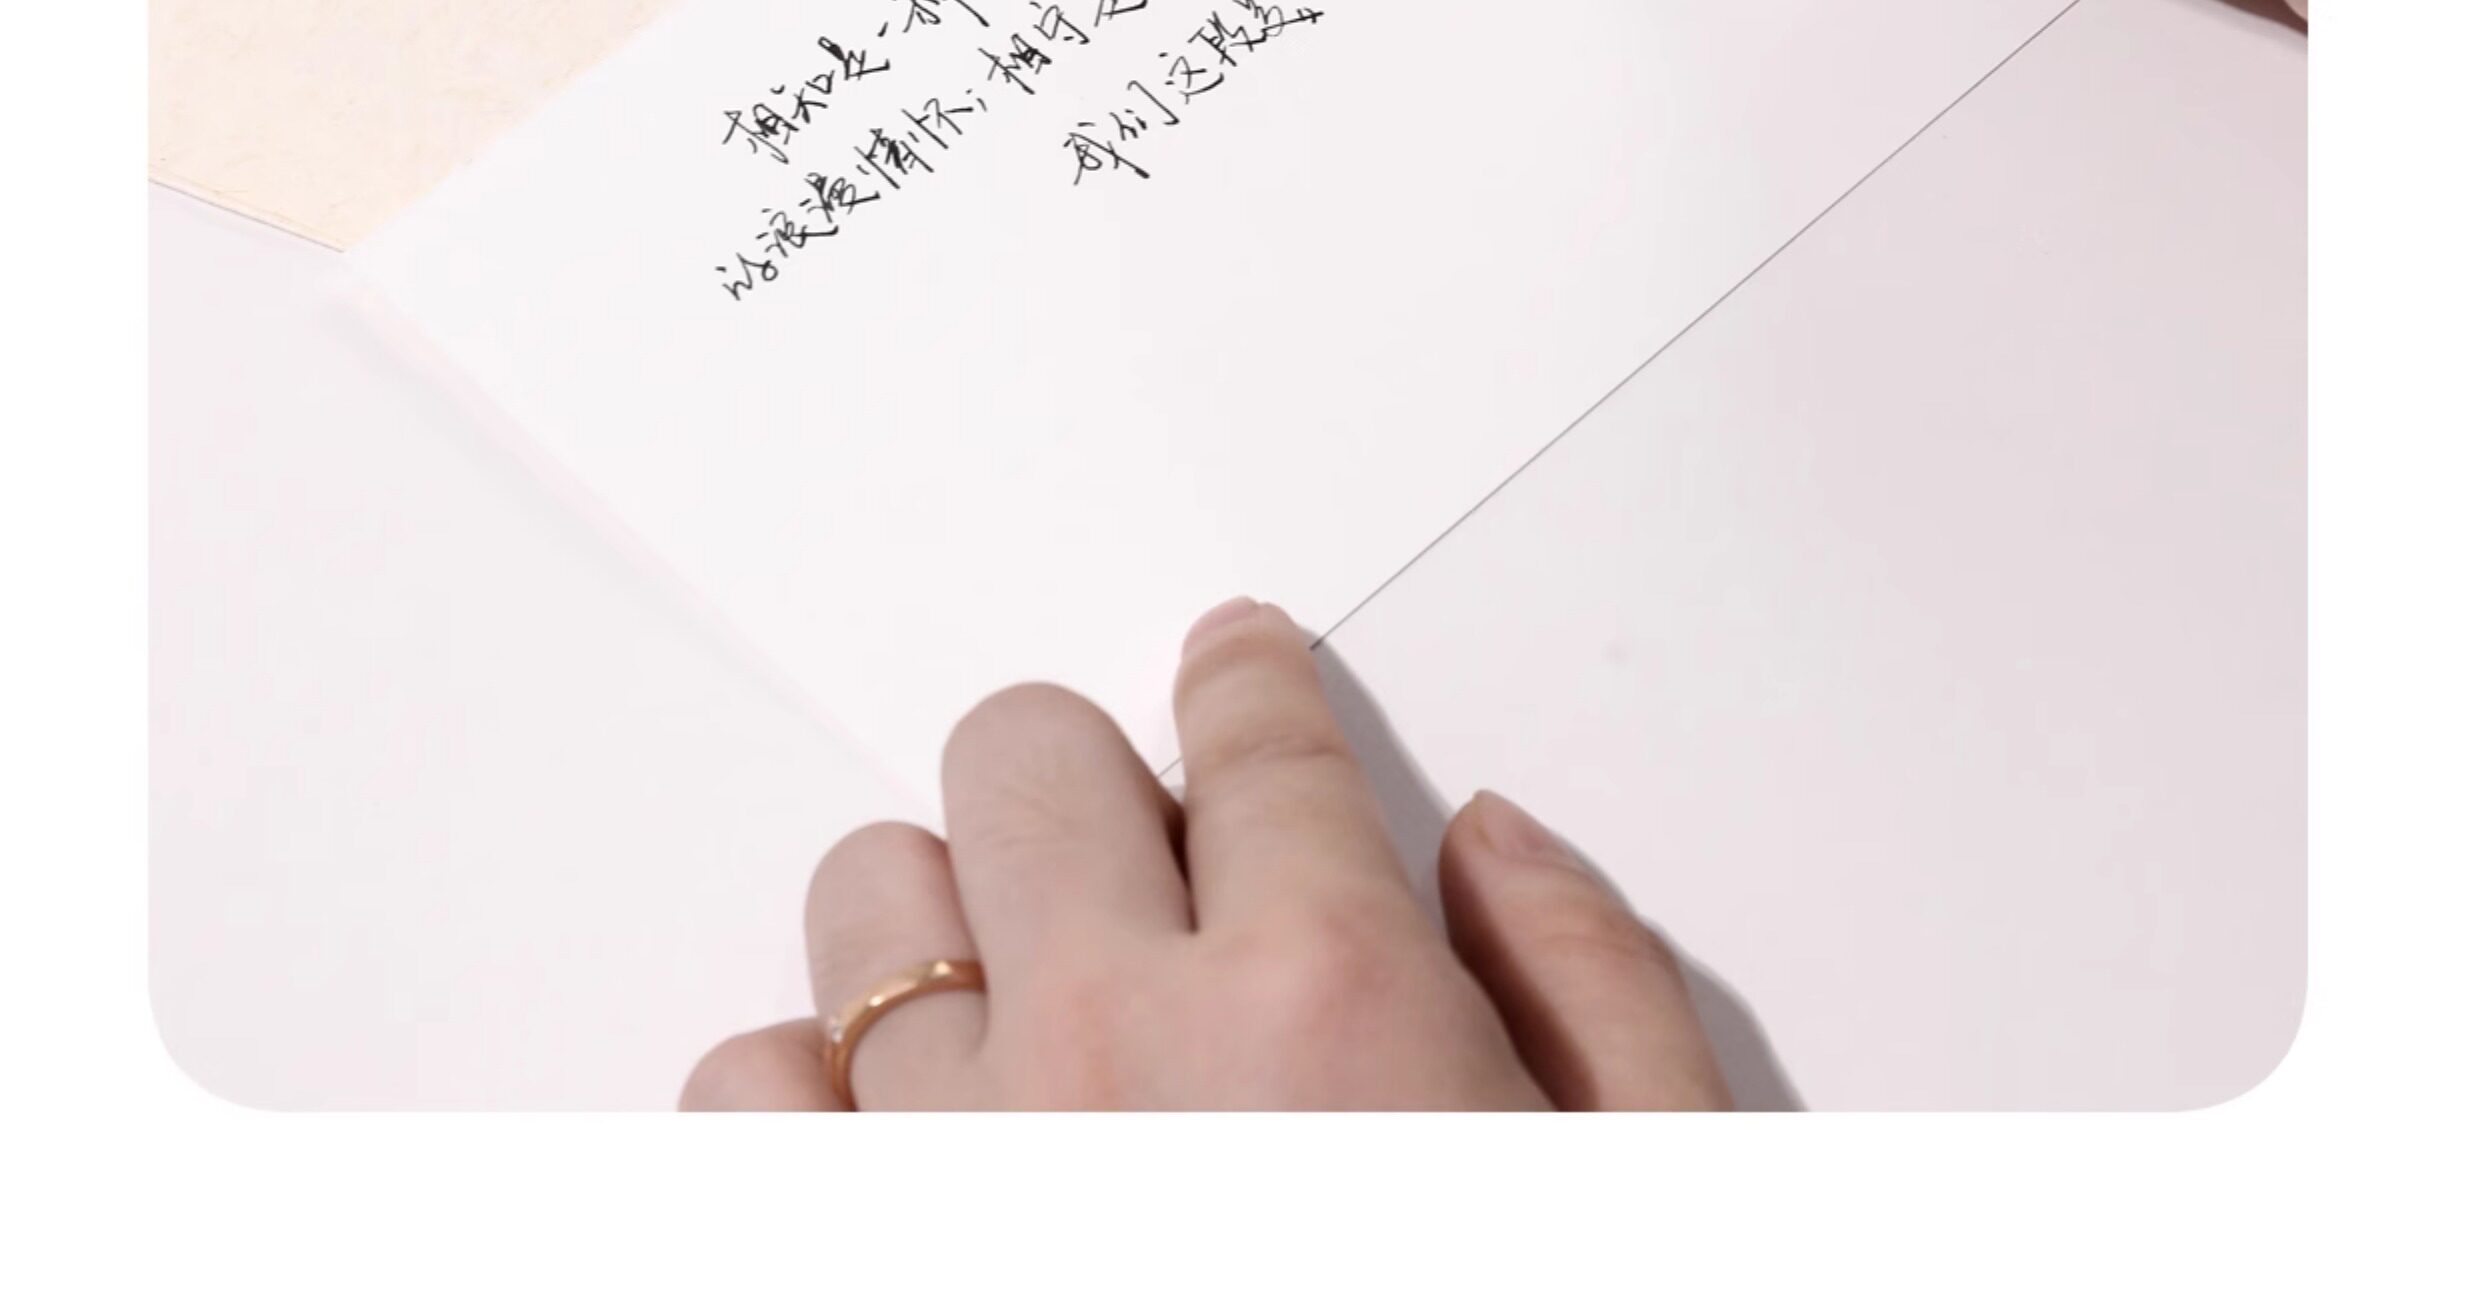 相知是一种
以浪漫情怀；相守是
我们这段